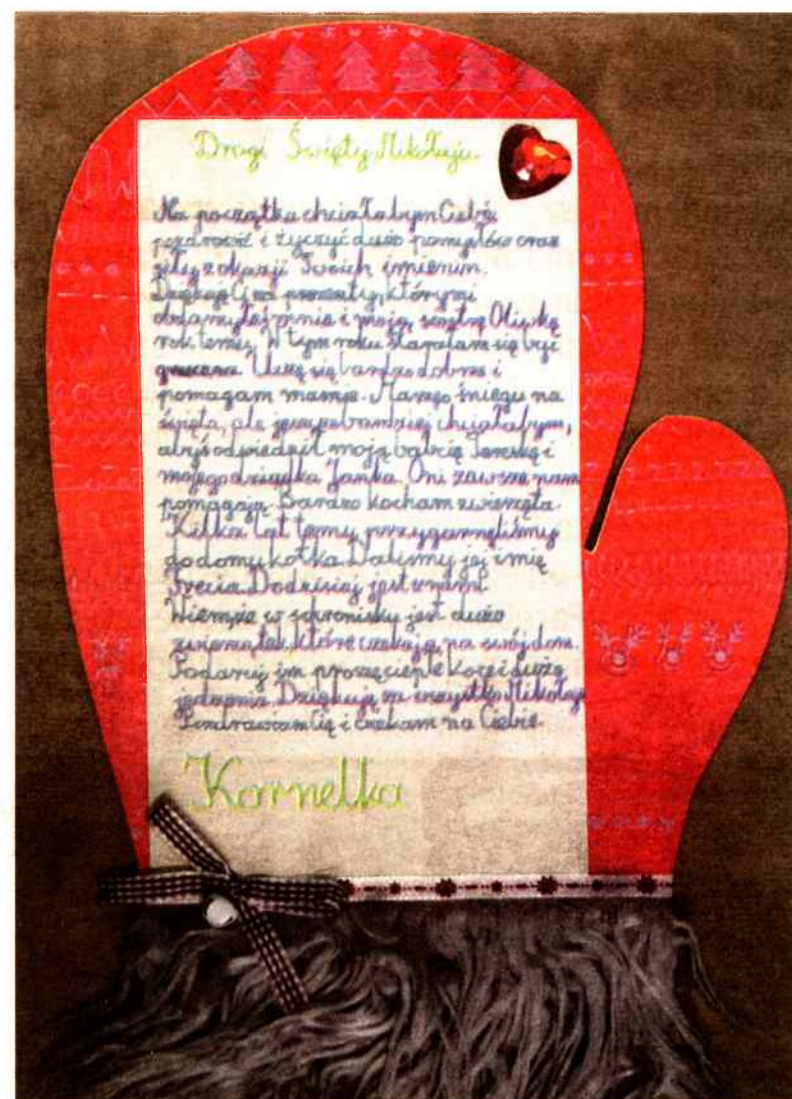 Drogi Święty Mikołaju.
Na początku chciałabym Ciebie
pozdrowić i życzyć dużo pomysłów oraz
siły z okazji Twoich imienin.
Dziękuję Ci za prezenty, którymi
obdarzyłeś mnie i moją siostrę Oliwkę
rok temu. W tym roku starałam się być
grzeczna. Uczę się bardzo dobrze i
pomagam mamie. Marzę o śniegu na
święta, ale jeszcze bardziej chciałabym,
abyś odwiedził moją babcię Tereskę i
mojego dziadka Janka. Oni zawsze nam
pomagają. Bardzo kocham zwierzęta.
Kilka lat temu przygarnęliśmy
do domu kotka. Daliśmy jej imię
Trecia. Do dzisiaj jest z nami.
Wiem, że w schronisku jest dużo
zwierzątek, które czekają na swój dom.
Podaruj im proszę ciepłe koce i dużo
jedzenia. Dziękuję za wszystko Mikołaju
Pozdrawiam Cię i czekam na Ciebie.
Kornelka